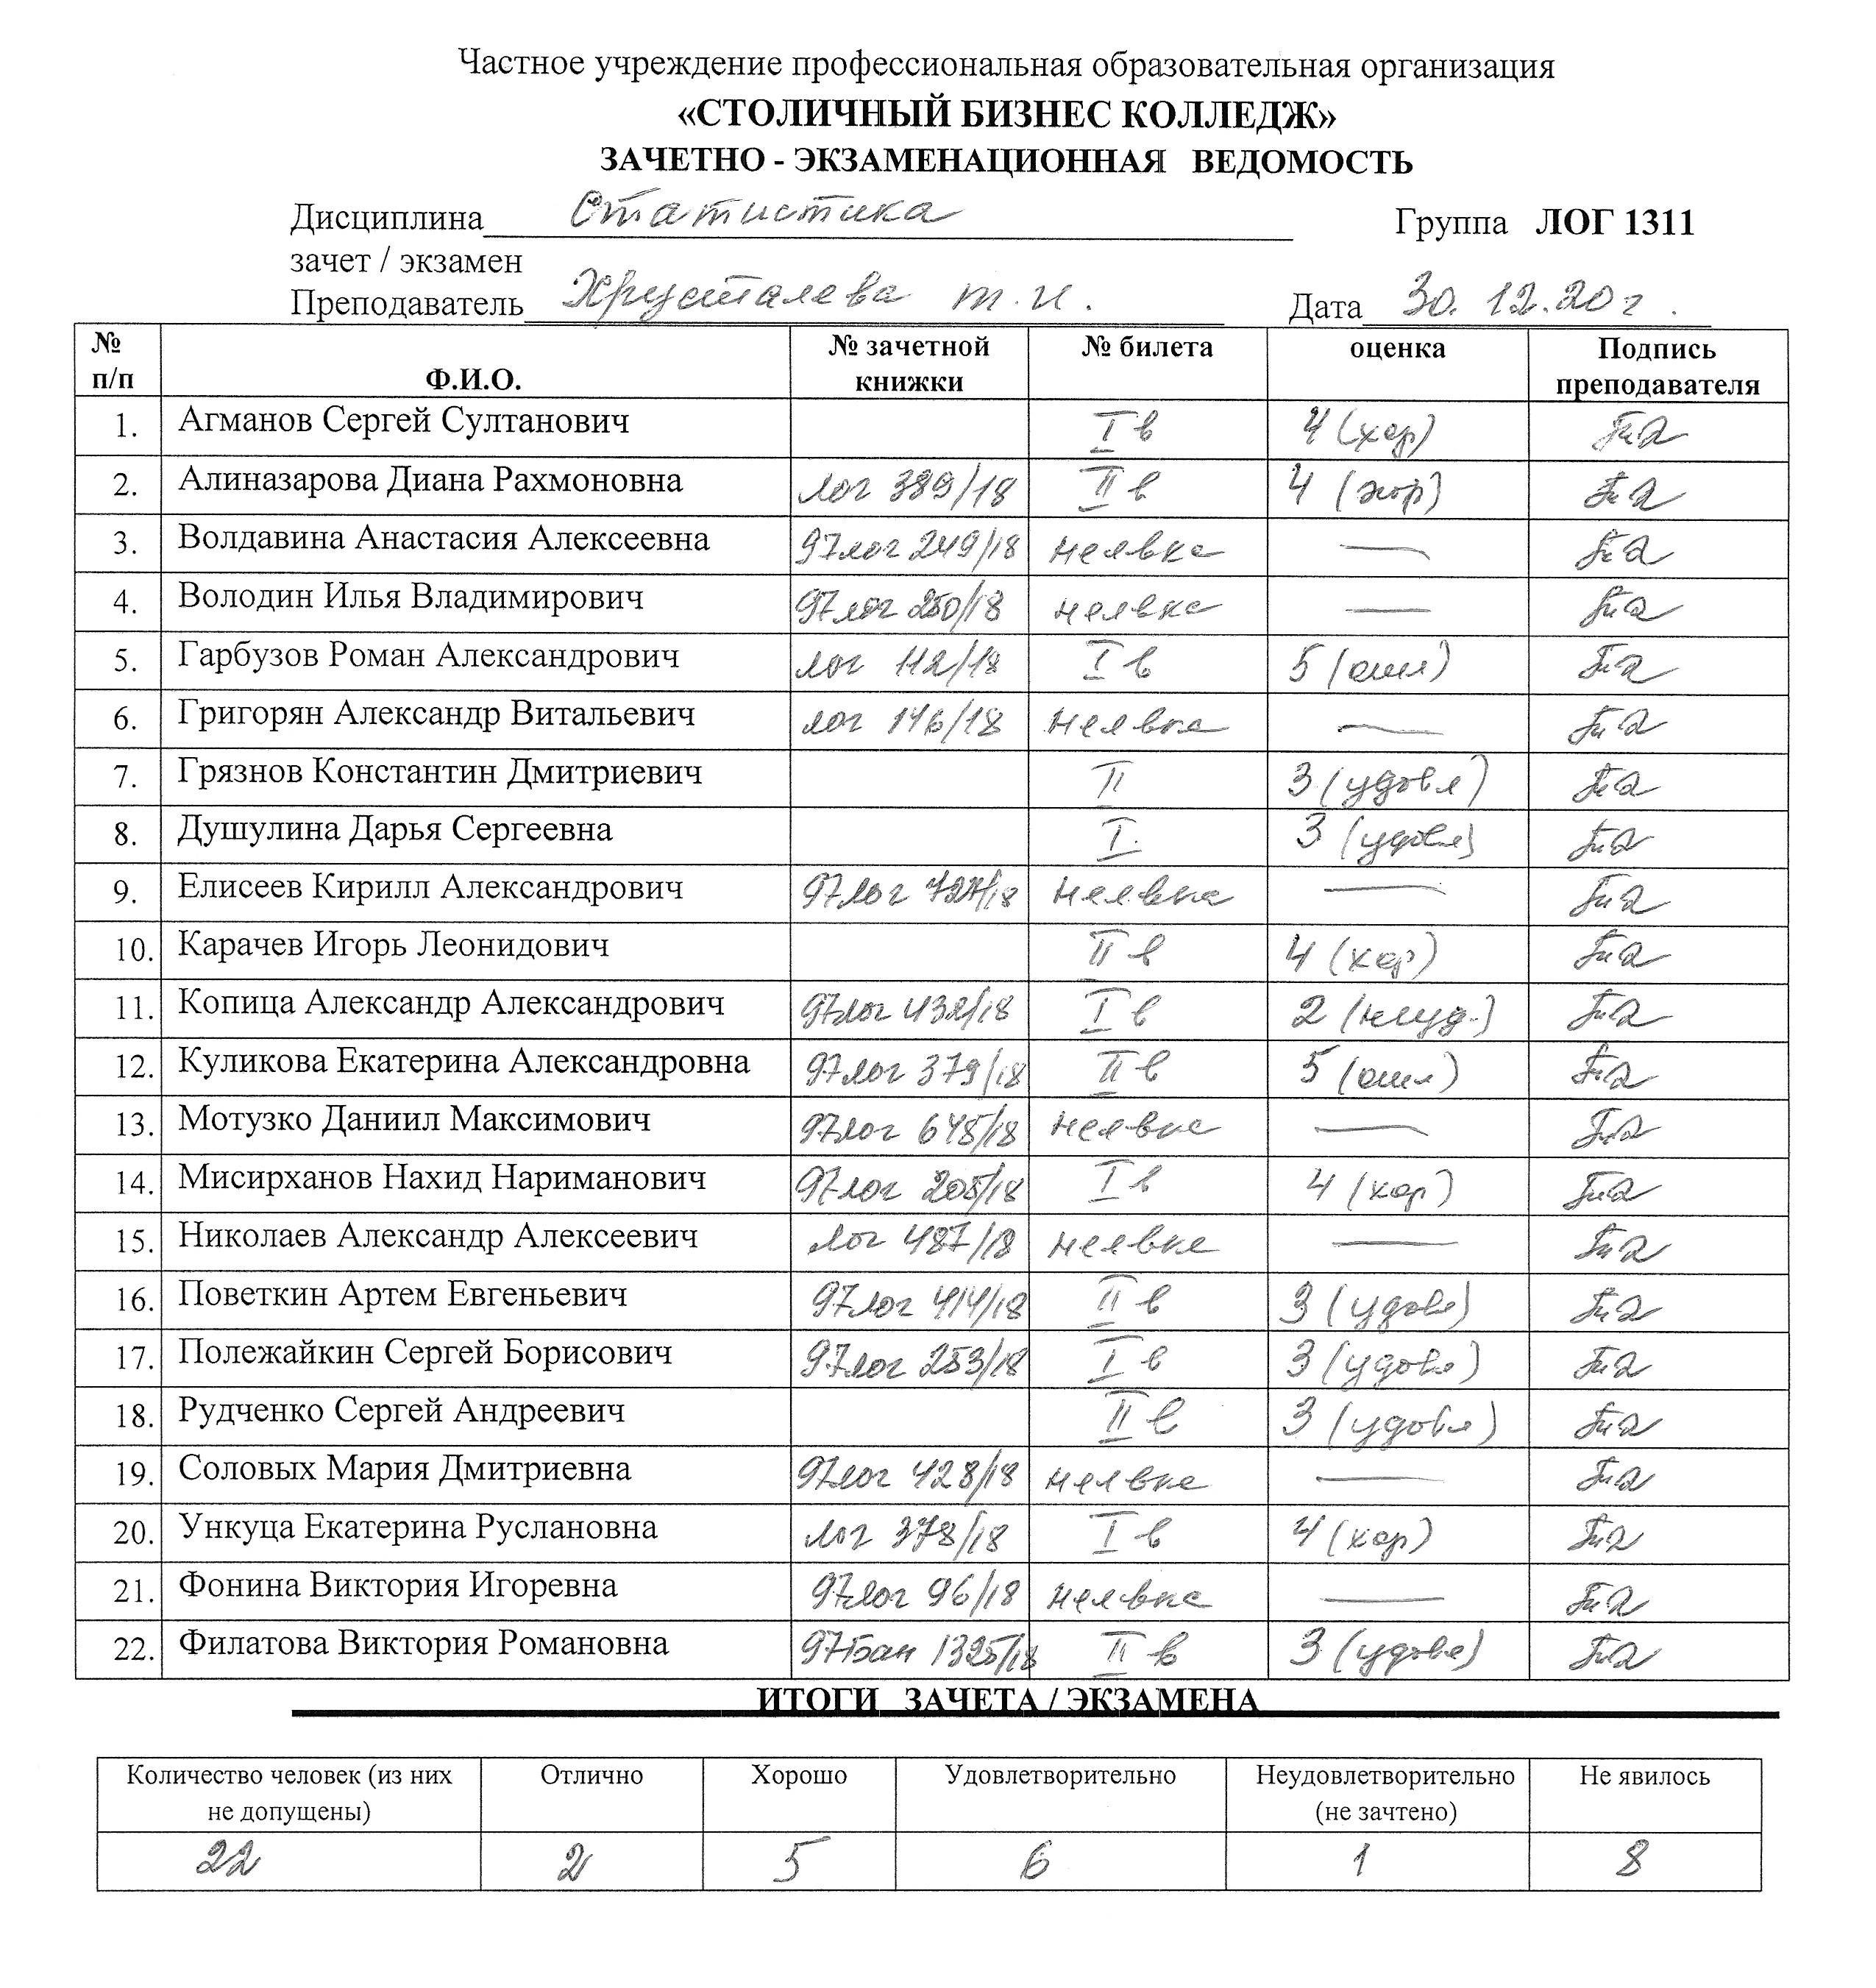 Частное учреждение профессиональная образовательная организация
«СТОЛИЧНЫЙ БИЗНЕС КОЛЛЕДЖ»
ЗАЧЕТНО - ЭКЗАМЕНАЦИОННАЯ ВЕДОМОСТЬ
Дисциплина Статистика Группа ЛОГ 1311
зачет / экзамен
Преподаватель Хрусталева Т.И. Дата 30.12.20г.
№ п/п Ф.И.О. № зачетной книжки № билета оценка Подпись преподавателя
1. Агманов Сергей Султанович I в 4 (хор)
2. Алиназарова Диана Рахмоновна лог 389/18 II в 4 (хор)
3. Волдавина Анастасия Алексеевна 97лог 249/18 неявка —
4. Володин Илья Владимирович 97лог 250/18 неявка —
5. Гарбузов Роман Александрович лог 112/18 I в 5 (отл)
6. Григорян Александр Витальевич лог 146/18 неявка —
7. Грязнов Константин Дмитриевич II 3 (удовл)
8. Душулина Дарья Сергеевна I. 3 (удовл)
9. Елисеев Кирилл Александрович 97лог неявка —
10. Карачев Игорь Леонидович II в 4 (хор)
11. Копица Александр Александрович 97лог 432/18 I в 2 (неуд.)
12. Куликова Екатерина Александровна 97лог 379/18 II в 5 (отл)
13. Мотузко Даниил Максимович 97лог 645/18 неявка —
14. Мисирханов Нахид Нариманович 97лог 205/18 I в 4 (хор)
15. Николаев Александр Алексеевич лог 487/18 неявка —
16. Поветкин Артем Евгеньевич 97лог 414/18 II в 3 (удовл)
17. Полежайкин Сергей Борисович 97лог 253/18 I в 3 (удовл)
18. Рудченко Сергей Андреевич II в 3 (удовл)
19. Соловых Мария Дмитриевна 97лог 428/18 неявка —
20. Ункуца Екатерина Руслановна лог 378/18 I в 4 (хор)
21. Фонина Виктория Игоревна 97лог 96/18 неявка —
22. Филатова Виктория Романовна 97Бан 1325/18 II в 3 (удовл)
ИТОГИ ЗАЧЕТА / ЭКЗАМЕНА
Количество человек (из них не допущены) Отлично Хорошо Удовлетворительно Неудовлетворительно (не зачтено) Не явилось
22 2 5 6 1 8